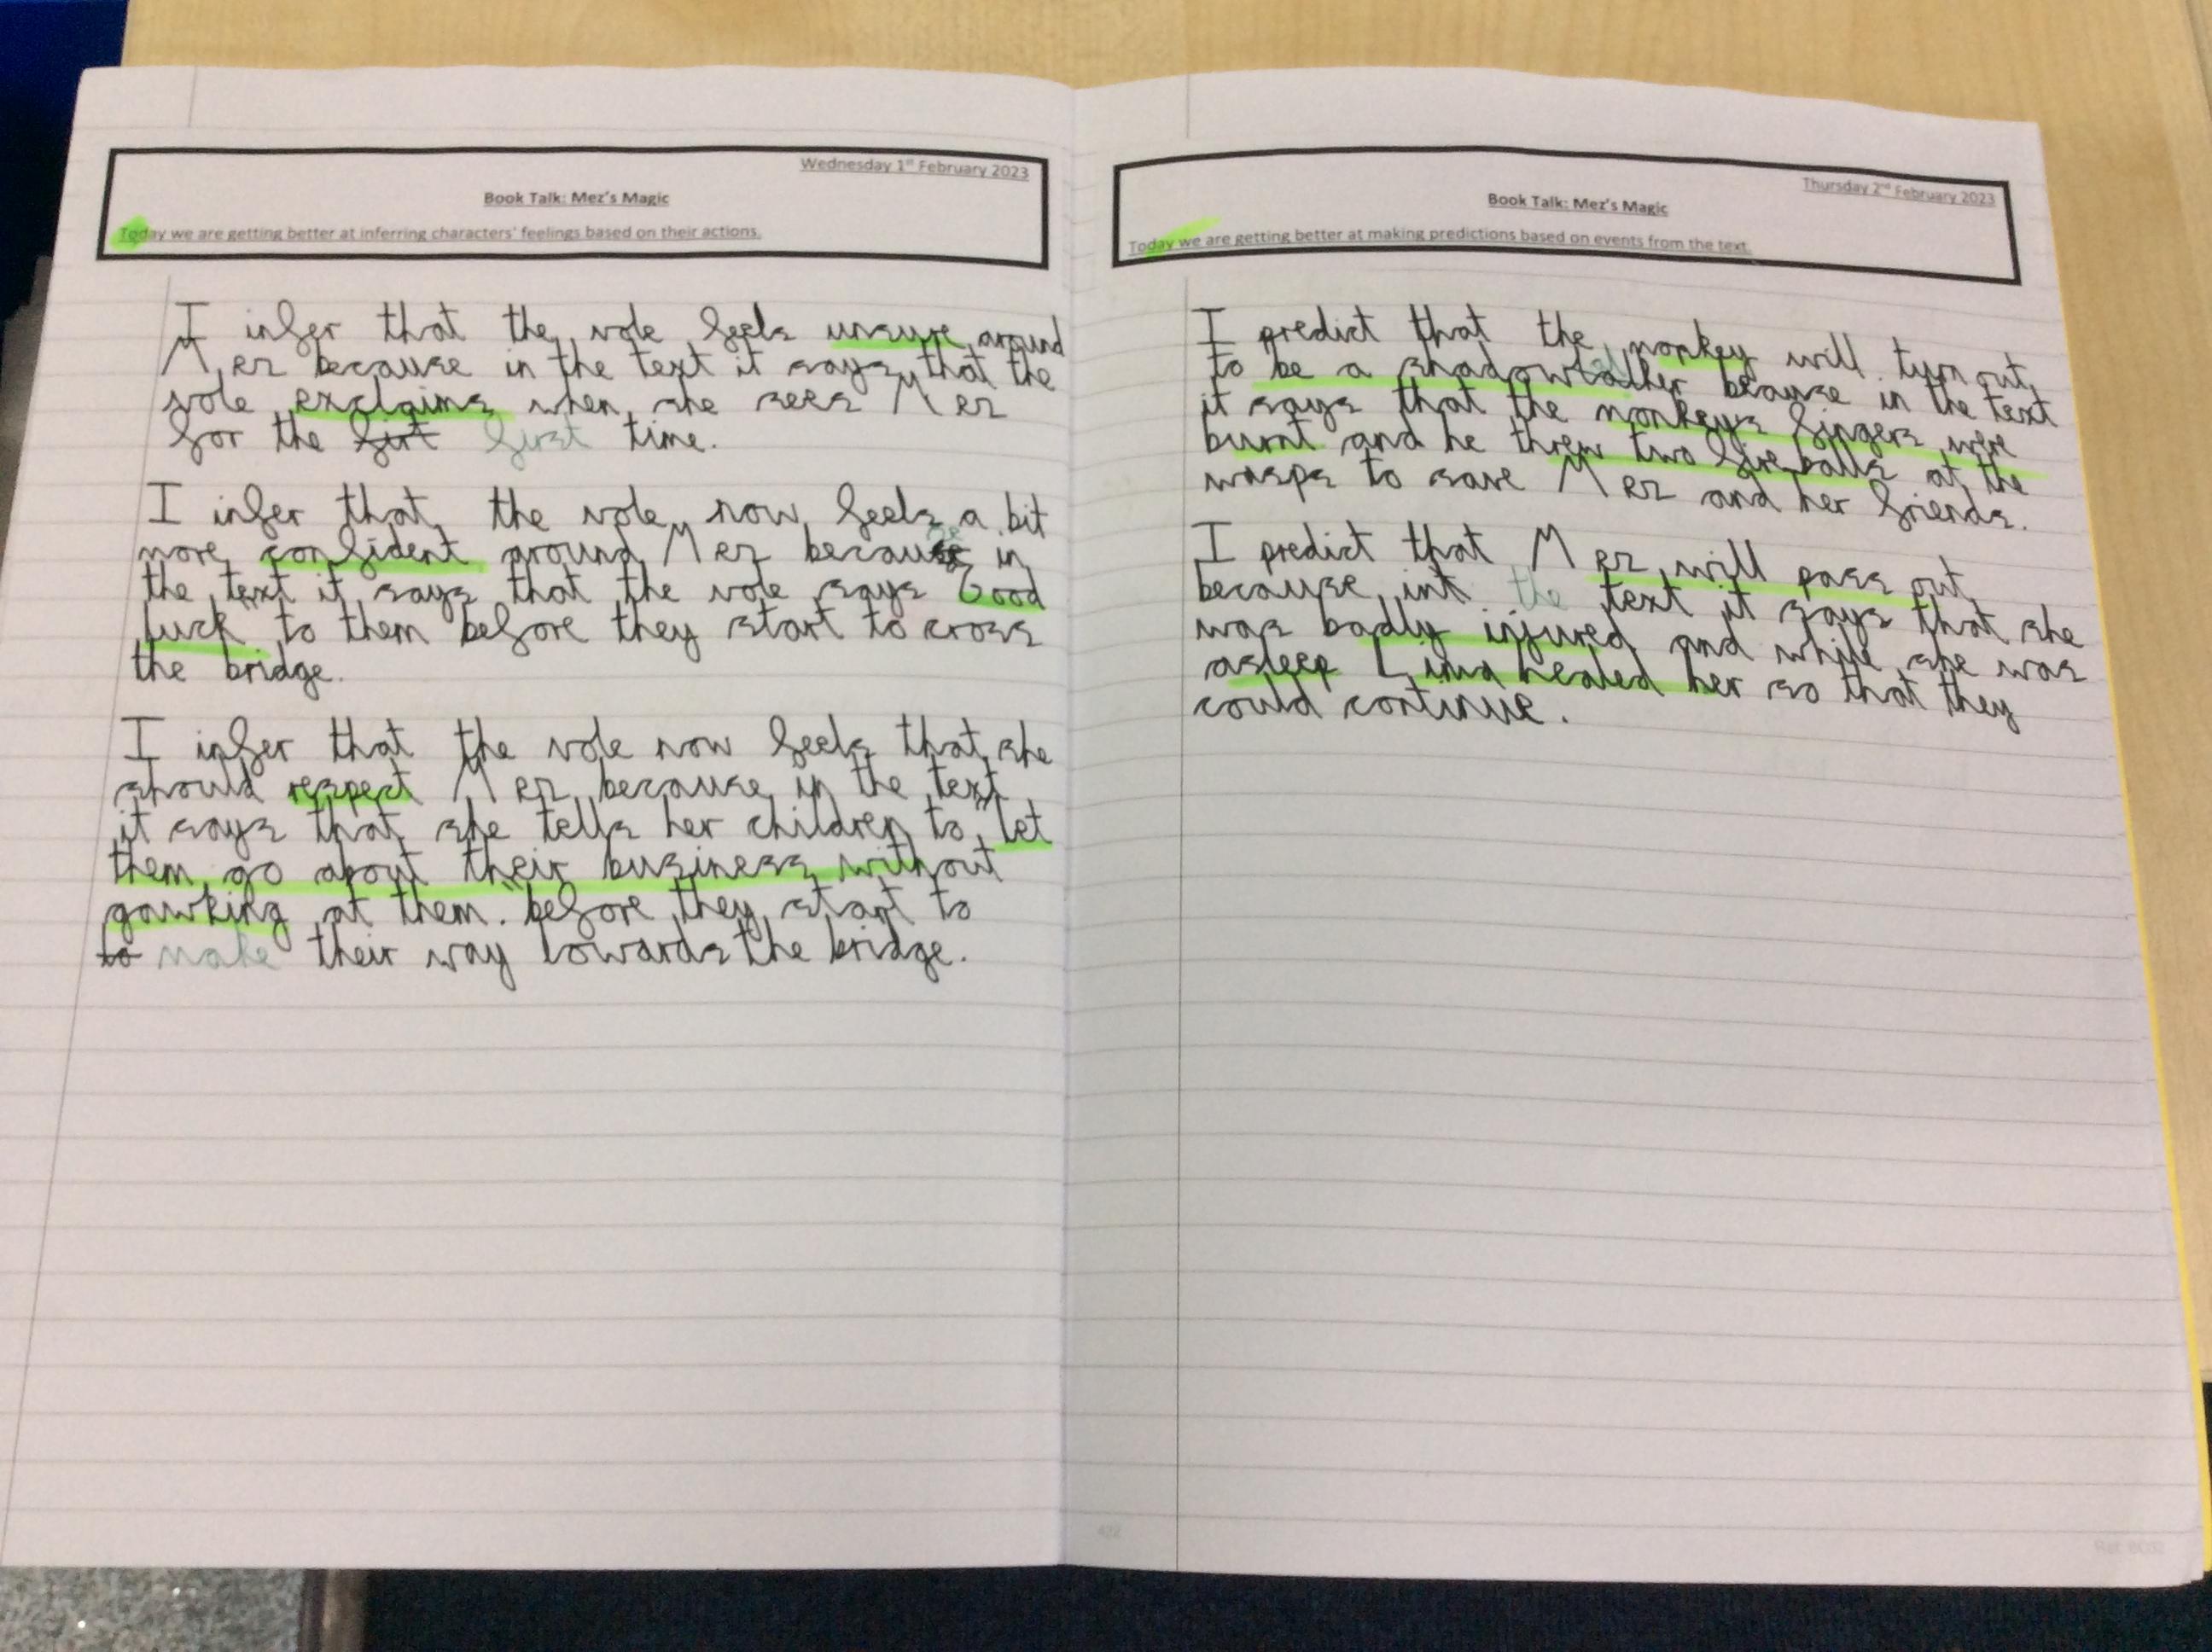 Wednesday 1st February 2023
Book Talk: Mez's Magic
Today we are getting better at inferring characters' feelings based on their actions.
I infer that the vole feels unsure around
Mez because in the text it says that the
vole exclaims when she sees Mez
for the firt first time.
I infer that the vole now feels a bit
more confident around Mez because in
the text it says that the vole says "Good
luck" to them before they start to cross
the bridge.
I infer that the vole now feels that she
should respect Mez because in the text
it says that she tells her children to "let
them go about their business without
gawking at them." before they start to
to make their way towards the bridge.
Thursday 2nd February 2023
Book Talk: Mez's Magic
Today we are getting better at making predictions based on events from the text.
I predict that the monkey will turn out
to be a shadowwalker because in the text
it says that the monkeys fingers were
burnt and he threw two fire balls at the
wasps to save Mez and her friends.
I predict that Mez will pass out
because int the text it says that she
was badly injured and while she was
asleep Lima healed her so that they
could continue.